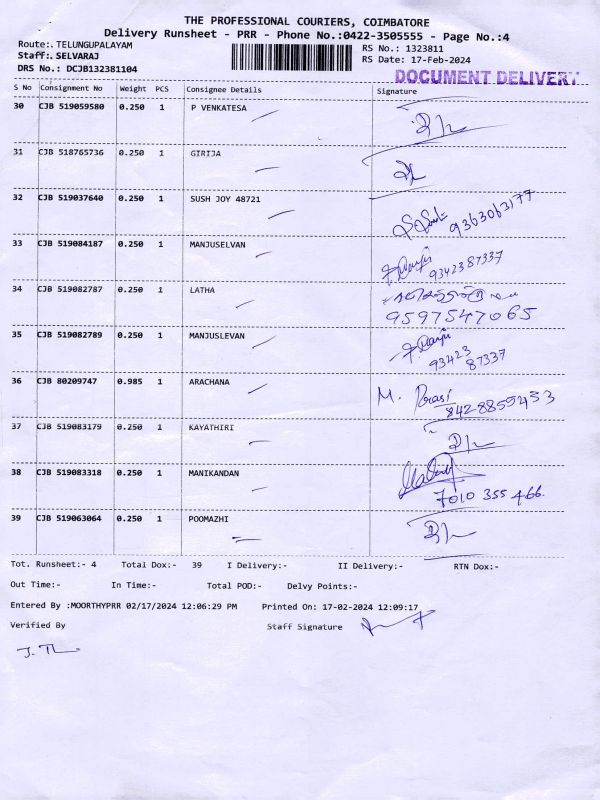 THE PROFESSIONAL COURIERS, COIMBATORE
Delivery Runsheet - PRR - Phone No.:0422-3505555 - Page No.:4
Route:. TELUNGUPALAYAM
RS No.: 1323811
Staff:. SELVARAJ
RS Date: 17-Feb-2024
DRS No.: DCJB132381104
DOCUMENT DELIVERY
S No Consignment No Weight PCS Consignee Details Signature
30 CJB 519059580 0.250 1 P VENKATESA
31 CJB 518765736 0.250 1 GIRIJA
32 CJB 519037640 0.250 1 SUSH JOY 48721
9363063177
33 CJB 519084187 0.250 1 MANJUSELVAN
9342387337
34 CJB 519082787 0.250 1 LATHA
9597547065
35 CJB 519082789 0.250 1 MANJUSLEVAN
93423
87337
36 CJB 80209747 0.985 1 ARACHANA
8428855453
37 CJB 519083179 0.250 1 KAYATHIRI
38 CJB 519083318 0.250 1 MANIKANDAN
7010 355 466
39 CJB 519063064 0.250 1 POOMAZHI
Tot. Runsheet:- 4 Total Dox:- 39 I Delivery:- II Delivery:- RTN Dox:-
Out Time:- In Time:- Total POD:- Delvy Points:-
Entered By :MOORTHYPRR 02/17/2024 12:06:29 PM Printed On: 17-02-2024 12:09:17
Verified By Staff Signature